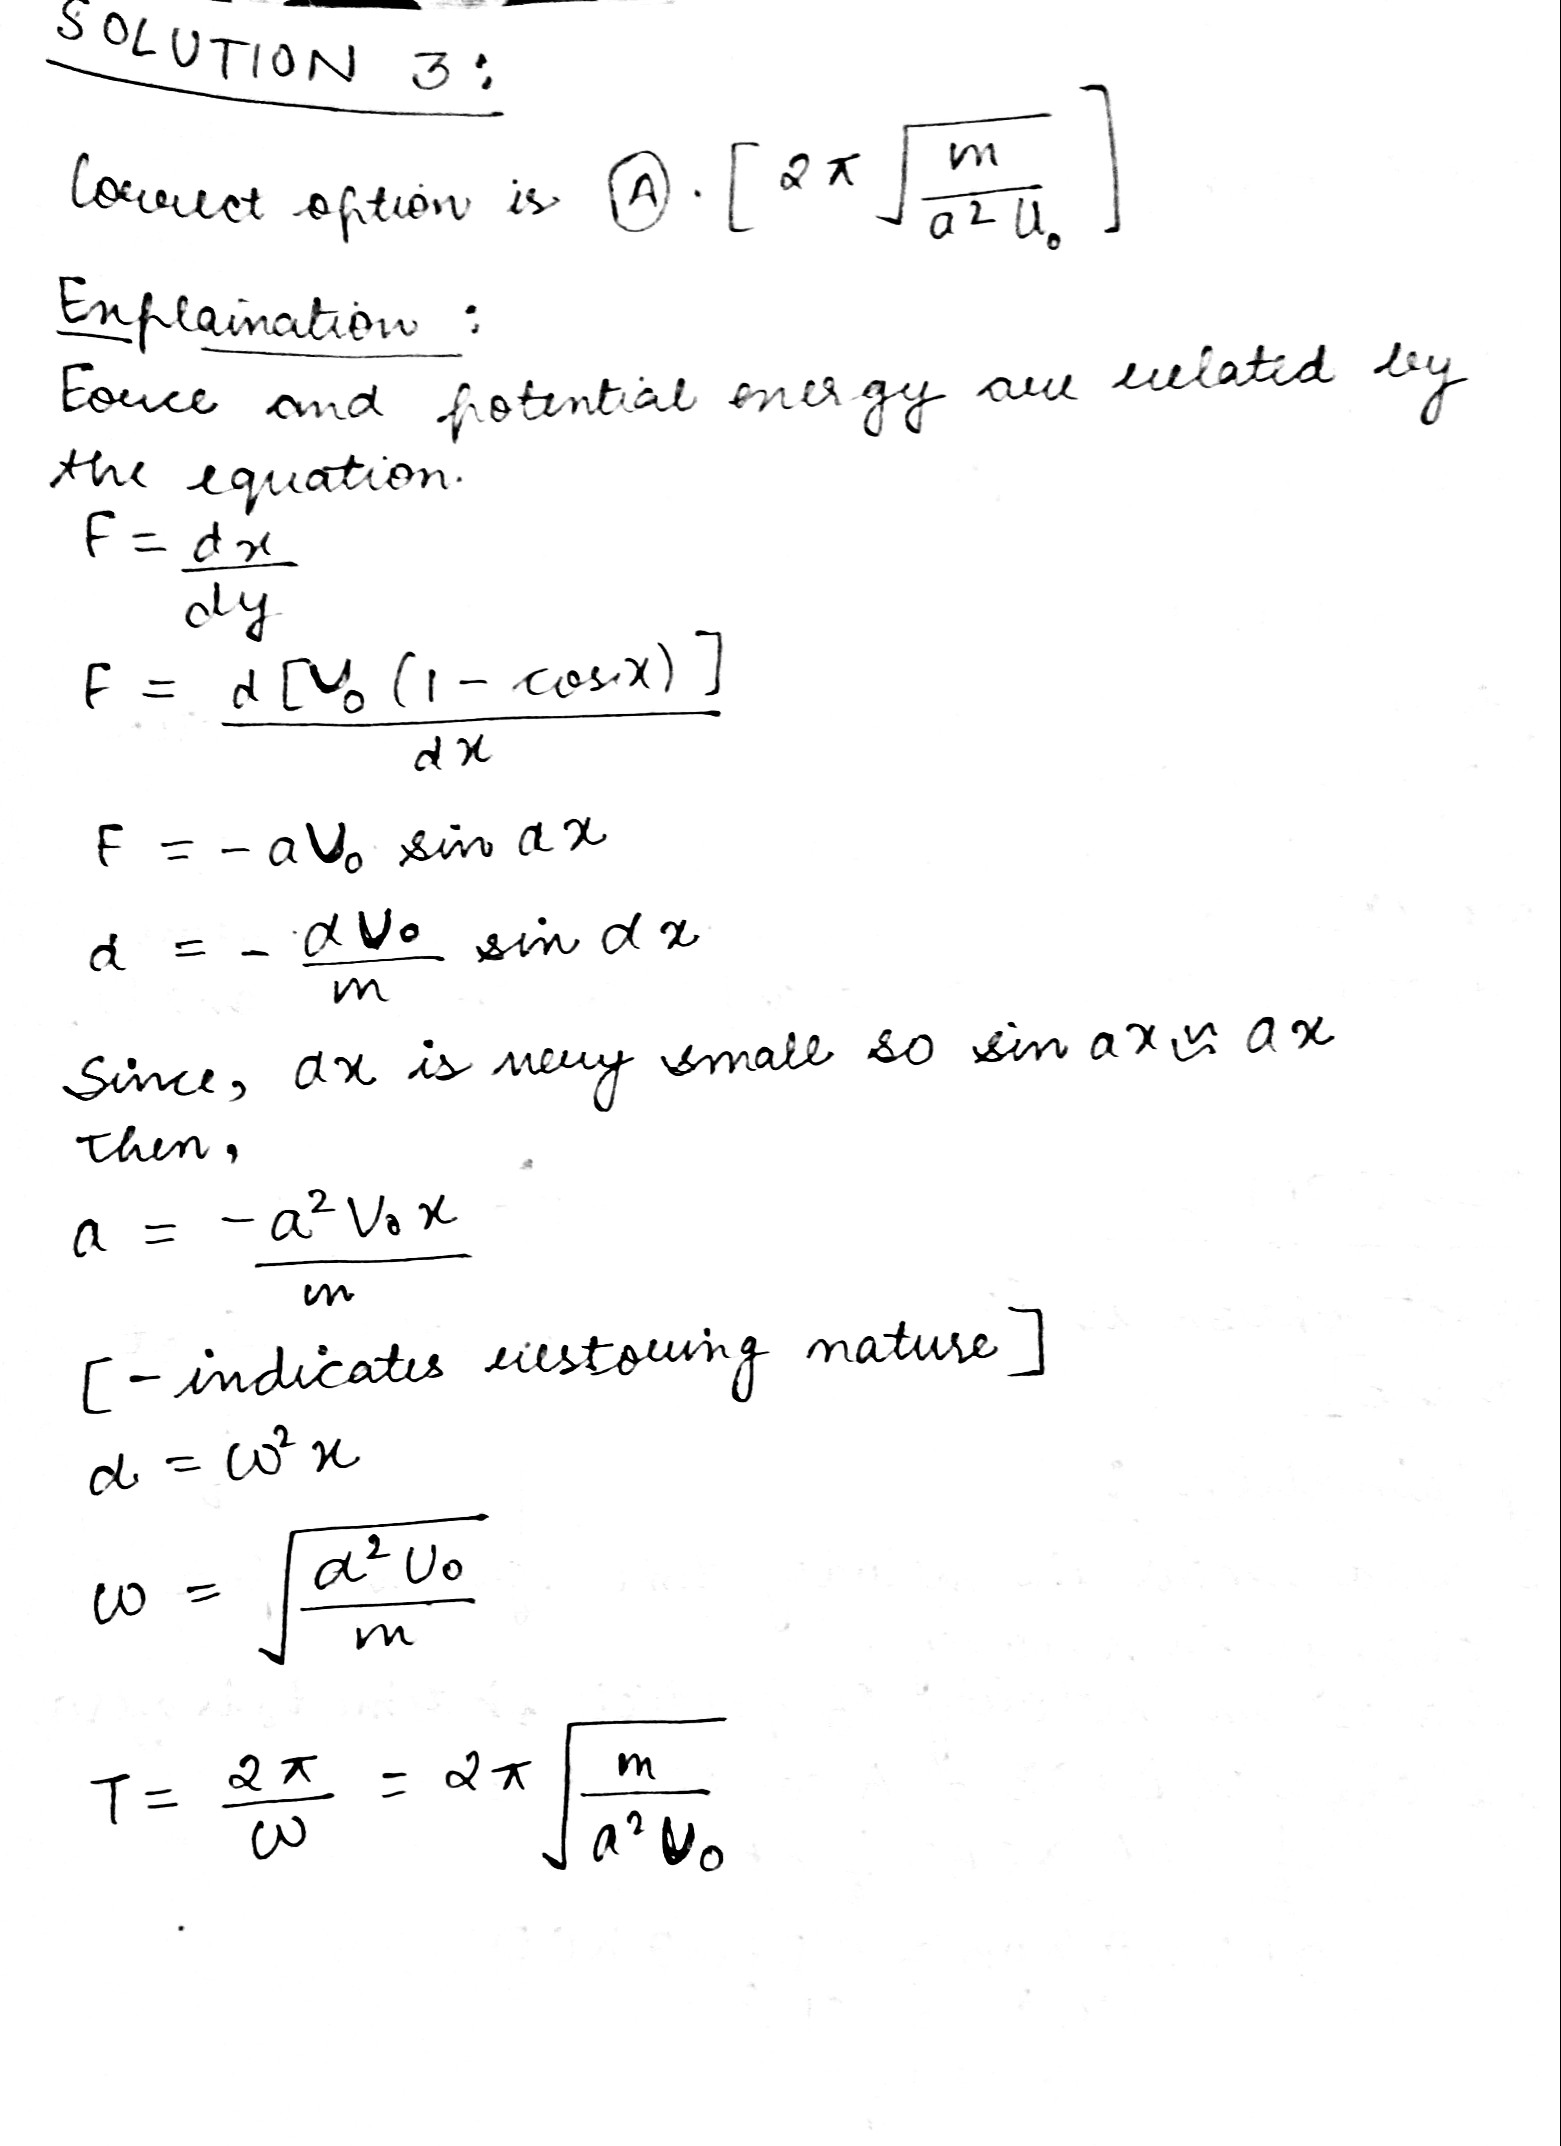 SOLUTION 3:
Correct option is Ⓐ. [2π √(m/a²U₀)]
Explaination :
Force and potential energy are related by
the equation.
F = dx/dy
F = d[U₀(1 - cosx)]/dx
F = - aU₀ sin ax
a = - aU₀/m sin ax
Since, ax is very small so sin ax ≈ ax
Then,
a = -a²V₀x/m
[- indicates restoring nature]
a = ω²x
ω = √(a²U₀/m)
T = 2π/ω = 2π √(m/a²U₀)